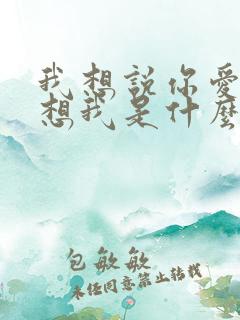 我想說你愛
想我是什麼
包敏敏
未经同意禁止转载